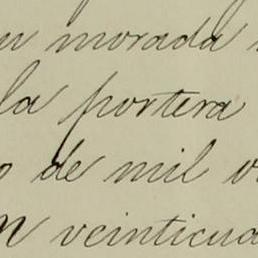 su morada
la portera
o de mil
n veinticua